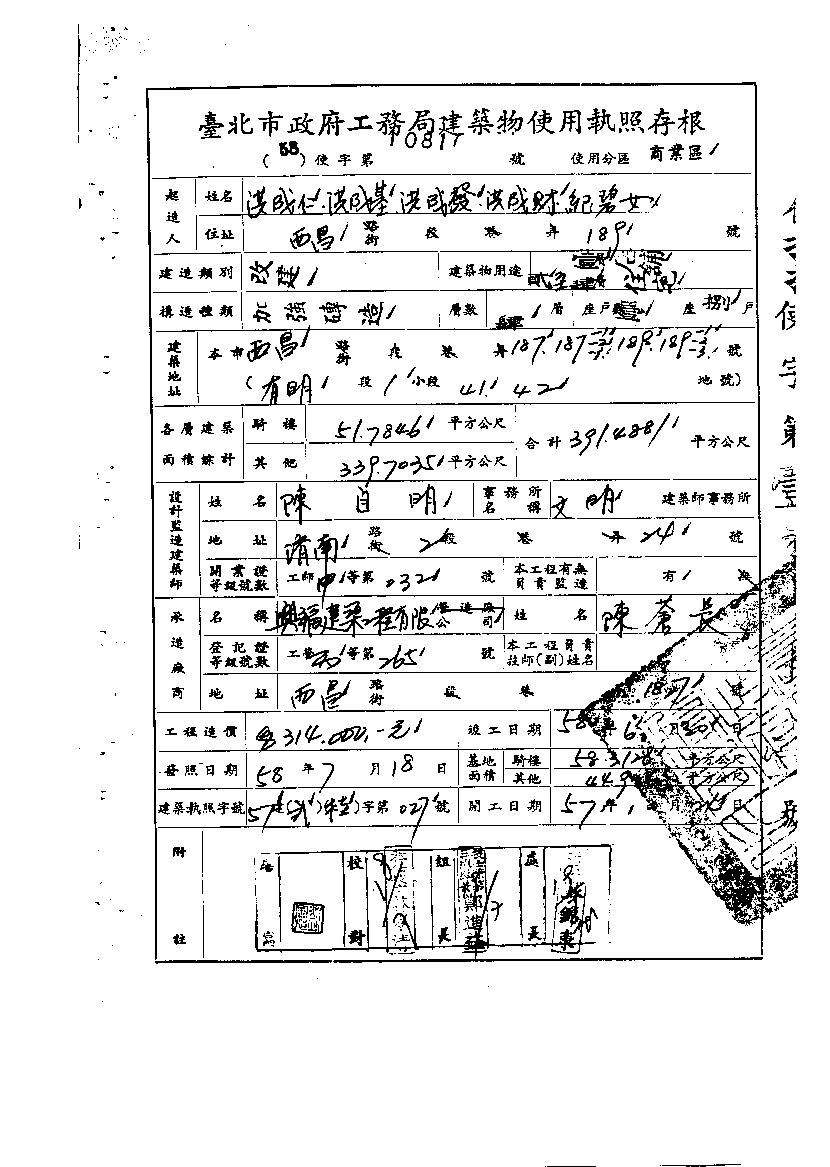 臺北市政府工務局建築物使用執照存根
(58) 使字第 1081 號 使用分區 商業區
起造人 姓名 洪成仁 洪成基 洪成發 洪成財 紀碧女
住址 西昌 路街 段 巷 弄 189 號
建造類別 改建 建築物用途 住
構造種類 加強磚造 層數 層 座戶數 壹 座 捌 戶
建築地址 本市 西昌 路街 段 巷 弄 187.187-
189.189- 號
(有明 段 1 小段 41. 42 地號)
各層建築面積總計 騎樓 51.7846 平方公尺 合計 391.4881 平方公尺
其他 339.7035 平方公尺
設計監造建築師 姓名 陳自明 事務所名稱 文明 建築師事務所
地址 濟南 路街 2 段 巷 弄 24 號
開業證等級號數 工師 甲 等第 032 號 本工程有無負責監造 有 無
承造廠商 名稱 興福建築工程有限公司 姓名 陳蒼長
登記證等級號數 工營 丙 等第 265 號 本工程負責技師(副)姓名
地址 西昌 路街 段 巷 187 號
工程造價 314.000.-元 竣工日期 58 年 6 月 30 日
發照日期 58 年 7 月 18 日 基地面積 騎樓 58.3128 平方公尺
其他 449 平方公尺
建築執照字號 57 建 字第 027 號 開工日期 57 年 1 月 日
附註 校對 組長 處長
使字第壹 號